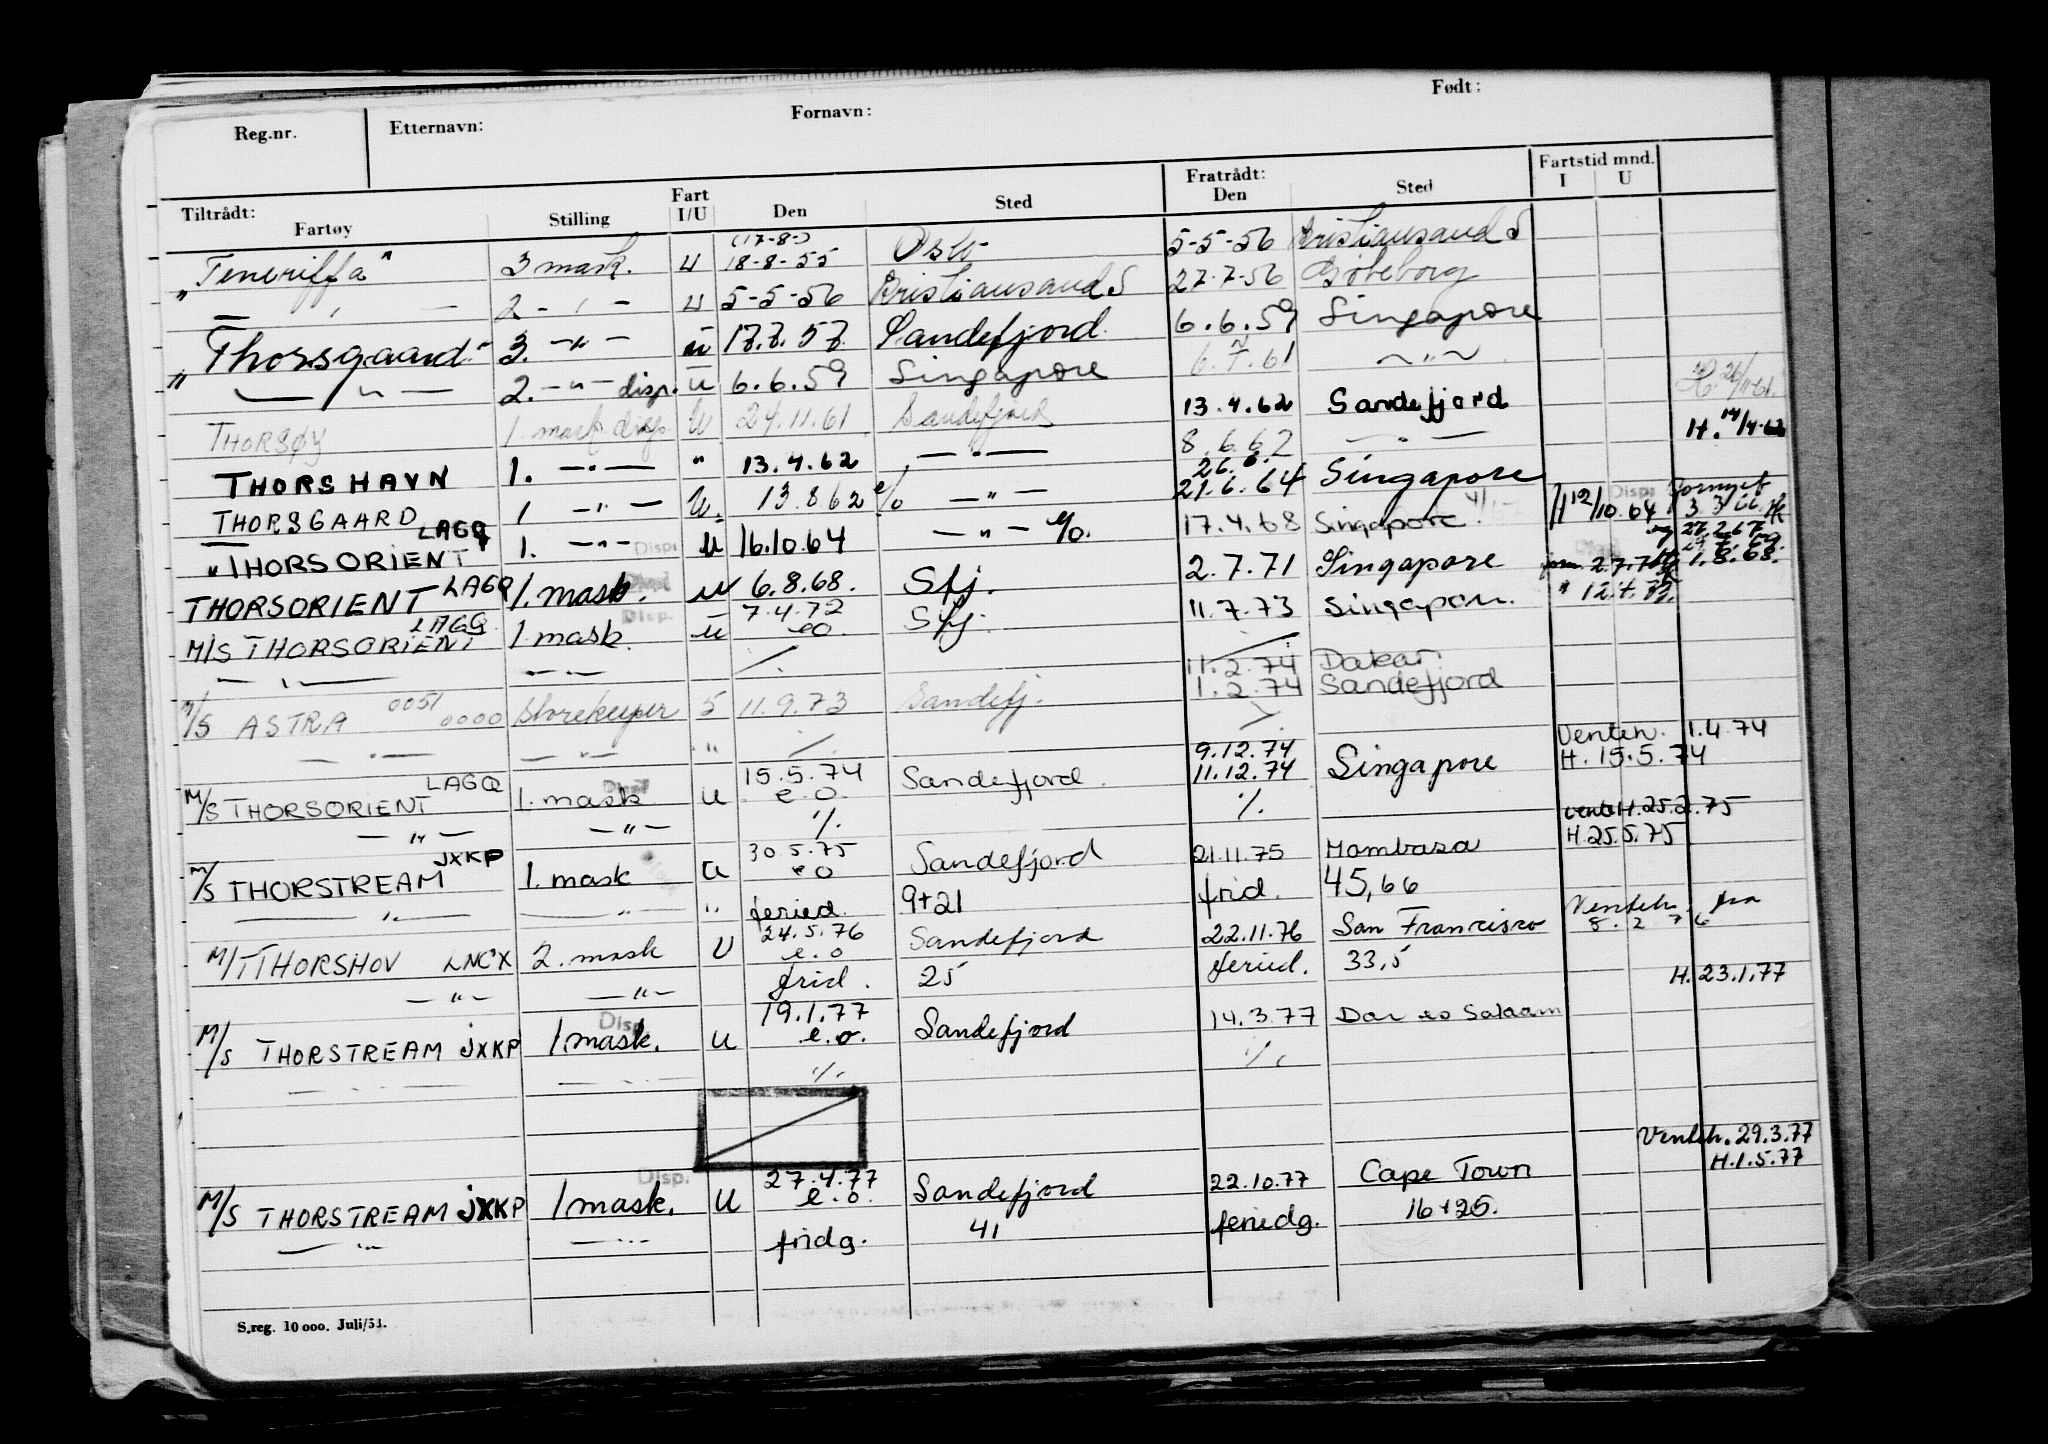 Reg.nr. Etternavn: Fornavn: Født:
Tiltrådt: Fartøy Stilling Fart I/U Den Sted Fratrådt: Den Sted Fartstid mnd. I U
(17-8-)
"Teneriffa" 3 mask. U 18-8-55 Oslo 5-5-56 Kristiansand S
— , — 2 - , - U 5-5-56 Kristiansand S 27.7-56 Gøteborg
"Thorsgaard" 3. -"- U 17.7.57. Sandefjord. 6.6.59 Singapore
— " — 2. -"- disp. U 6.6.59 Singapore 6.7.61 ~ " ~
THORSØY 1. mask. disp U 24.11.61 Sandefjord 13.4.62 Sandefjord
THORSHAVN 1. —"— " 13.4.62 —"— 8.6.62 —"— H. 14/4-62
26.6.
THORSGAARD 1 —"— U. 13.8.62 e/o —"— 21.6.64 Singapore
"THORSORIENT LAGQ 1. —"— Disp. U 16.10.64 —"— e/o. 17.4.68 Singapore. 12/10.64 Disp. Fornyet
THORSORIENT LAGQ 1. mask. U 6.8.68. Sfj. 2.7.71 Singapore 1.8.68.
M/S THORSORIENT LAGQ 1. mask. Disp. U 7.4.72 eo. Sfj. 11.7.73 Singapore. " 12.4.72.
— " — — " — ·/. ·/.
11.2.74 Dakar.
M/S ASTRA 0051 0000 Storekeeper 5 11.9.73 Sandefj. 1.2.74 Sandefjord
— " — — " — " ·/. ·/.
Venteh. 1.4.74
M/S THORSORIENT LAGQ 1. mask Disp U 15.5.74 e.o. Sandefjord. 9.12.74 11.12.74 Singapore H. 15.5.74
— " — — " — ·/. ·/.
H. 25.2.75
M/S THORSTREAM JXKP 1. mask U 30.5.75 eo Sandefjord 21.11.75 Mombasa H. 25.5.75
— " — — " — " feried. 9+21 frid. 45,66
M/T THORSHOV LNCX 2. mask U 24.5.76 e.o Sandefjord 22.11.76 San Francisco Venteh. fra 8.2 76
— " — — " — frid. 25 feried. 33,5
H. 23.1.77
M/S THORSTREAM JXKP 1 mask. Disp. U 19.1.77 e.o. Sandefjord 14.3.77 Dar es Salaam
— " — — " — ·/. ·/.
Venteh. 29.3.77
M/S THORSTREAM JXKP 1 mask. Disp. U 27.4.77 e.o. Sandefjord 22.10.77 Cape Town H. 1.5.77
— " — — " — fridg. 41 feriedg. 16+25.
S.reg. 10 000. Juli/53.